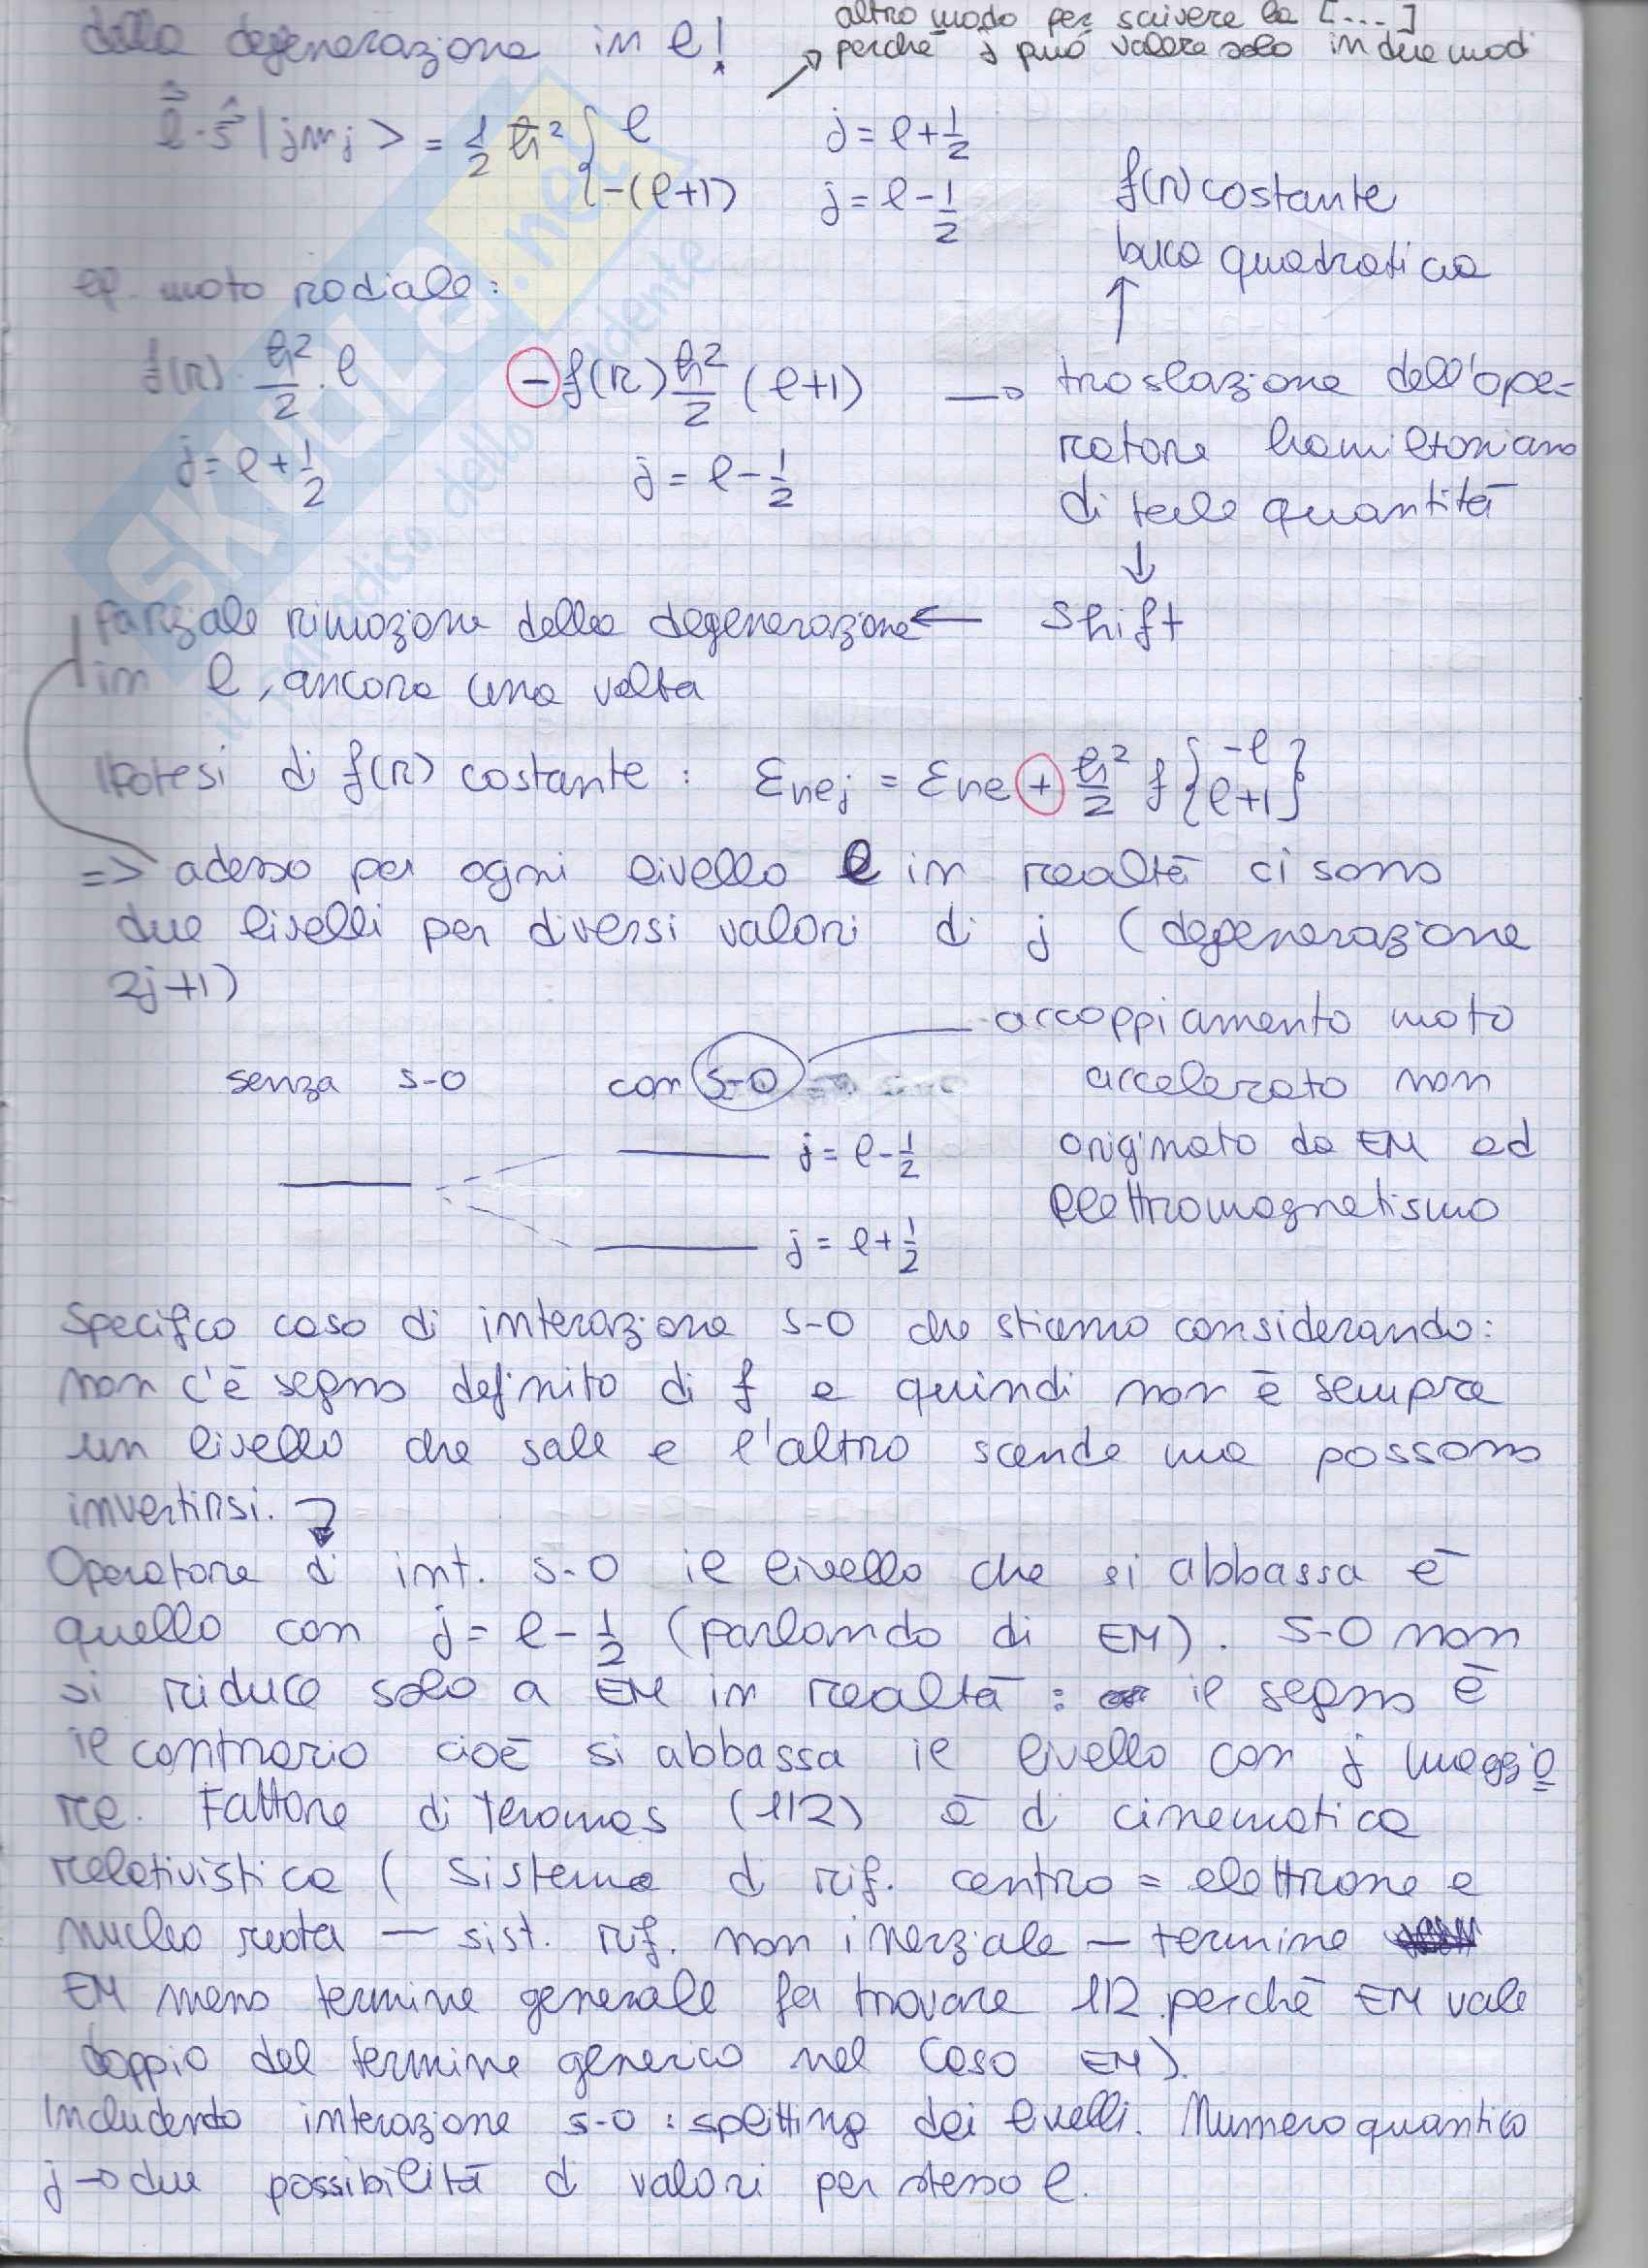 della degenerazione in l!
altro modo per scrivere la [....]
perchè j può valere solo in due mod
l·s |jmj> = 1/2 ħ² { l    j = l + 1/2
-(l+1)    j = l - 1/2
f(r) costante
buca quadratica
eq. moto radiale:
f(r)·ħ²/2·l    -f(r) ħ²/2 (l+1) → traslazione dell'ope-
j = l + 1/2    j = l - 1/2    ratore hamiltoniano
di tale quantità
↓
Parziale rimozione della degenerazione ← shift
in l, ancora una volta
Ipotesi di f(r) costante : εnlj = εnl + ħ²/2 f { -l
l+1 }
=> adesso per ogni livello l in realtà ci sono
due livelli per diversi valori di j (degenerazione
2j+1)
senza s-o    con s-o    accoppiamento moto
accelerato non
originato da EM ed
elettromagnetismo
j = l - 1/2
j = l + 1/2
Specifico caso di interazione s-o che stiamo considerando:
non c'è segno definito di f e quindi non è sempre
un livello che sale e l'altro scende ma possono
invertirsi.
Operatore di int. s-o il livello che si abbassa è
quello con j = l - 1/2 (parlando di EM). s-o non
si riduce solo a EM in realtà : il segno è
il contrario cioè si abbassa il livello con j maggio
re. Fattore di Teromas (1/2) è di cinematica
relativistica (sistema di rif. centro = elettrone e
nucleo ruota — sist. rif. non inerziale — termine
EM meno termine generale fa trovare 1/2 perchè EM vale
doppio del termine generico nel caso EM).
Includendo interazione s-o : splitting dei livelli. Numero quantico
j → due possibilità di valori per stesso l.
SKUOLA.net
il paradiso dello studente